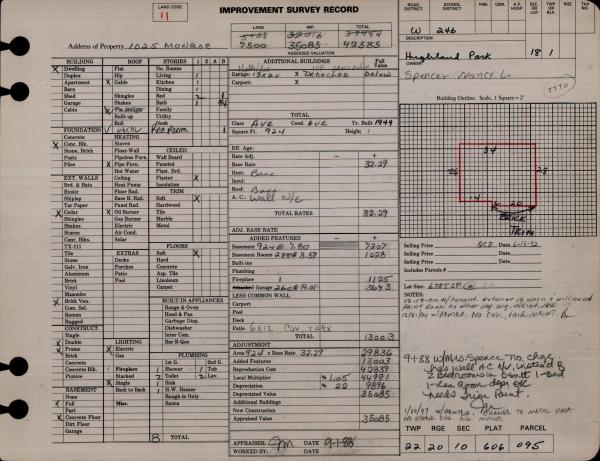 LAND CODE
11
IMPROVEMENT SURVEY RECORD
LAND IMP. TOTAL
7500 35085 42585
ASSESSED VALUATION
Address of Property 1025 MONROE
ROAD DISTRICT SCHOOL DISTRICT FIRE CEM. A.P. HOSP DEC. OR LOT TWP. OR BLK. RGE. TAX NO
W 246
DESCRIPTION
Highland Park 18 1
OWNER
Spencer Nancy L.
2770
BUILDING ROOF STORIES
Dwelling Flat No. Rooms
Duplex Hip Living
Apartment Gable Kitchen
Barn Dining
Shed Shingles Bed
Garage Shakes Bath
Cabin Family
Built-up Utility
Roll Nook
FOUNDATION METAL Rec Room
Concrete HEATING
Conc. Blk. Stoves CEILED
Stone, Brick Floor-Wall Wall Board
Posts Pipeless Furn. Paneled
Piles Pipe Furn. Plast. Brd.
Hot Water Ceiling
EXT. WALLS Radiant Plaster
Brd. & Bats Heat Pump Insulation
Rustic Floor Rad. TRIM
Shiplap Base R. Rad. Soft
Tar Paper Panel Rad. Hardwood
Cedar Oil Burner Tile
Shingles Gas Burner Marble
Shakes Electric Metal
Stucco Air Cond.
Conc. Blks. Solar
TX-111 FLOORS
Tile EXTRAS Soft
Stone Decks Hard
Galv. Iron Porches Concrete
Aluminum Patio Asphalt Tile
Brick Pool Linoleum
Vinyl Carpet
Masonite
Brick Ven. BUILT-IN APPLIANCES
Com. Sel. Range & Oven
Roman Hood & Fan
Ragged Garbage Disp.
CONSTRUCT. Dishwasher
Single Inter Com.
Double LIGHTING Bar B-Que
Frame Electric
Brick Gas PLUMBING
Concrete Fireplace 1 Shower Tub
Concrete Blk. Single 2 Toilet Lav.
Pumice Stacked 1 Sink
BASEMENT Back to Back 1 H.W. Heater
None Rough-in Only
Full Misc. Sauna
Part
Concrete Floor
Dirt Floor
Garage
8 TOTAL
ADDITIONAL BUILDINGS Full Value
Garage: 13x20 X Detached below
Carport: X
Total
Class Ave Cond. Ave Yr. Built 1949
Square Ft. 924 Height 1
Eff. Age:
Rate Adj. - +
Base Rate 32.29
Heat: Base
Insul:
Roof: Base
A.C.: Wall N/C
TOTAL RATES 32.29
ADJ. BASE RATE
ADDED FEATURES - +
Basement 924@7.80 7207
Basement Rooms 288@3.57 1028
Built-ins
Plumbing
Fireplace 1 1125
Garage 260@14.01 3643
LESS COMMON WALL
Carport
Pool
Deck
Patio
TOTAL 13003
ADJUSTMENT
Area 924 x Base Rate 32.29 29836
Added Features 13003
Reproduction Cost 42839
Local Multiplier x 1.05 44981
Depreciation % 22 9896
Depreciated Value 35085
Additional Buildings
New Construction
Appraised Value 35085
APPRAISER: DATE 9-1-88
WORKED BY: DATE
Building Outline. Scale, 1 Square = 2'
34
26 28
14 20
BRICK
TRIM
Selling Price QCD Date 6-15-92
Selling Price Date
Selling Price Date
Includes Parcels #
Lot Size:
NOTES:
9-1-88 w/Mrs Spence no chgs
has wall AC N/V, instead of
2 Bedrooms in Bsmt 1-Bed
1-Rec Room
needs Trim Paint.
TWP RGE SEC PLAT PARCEL
22 20 10 606 095